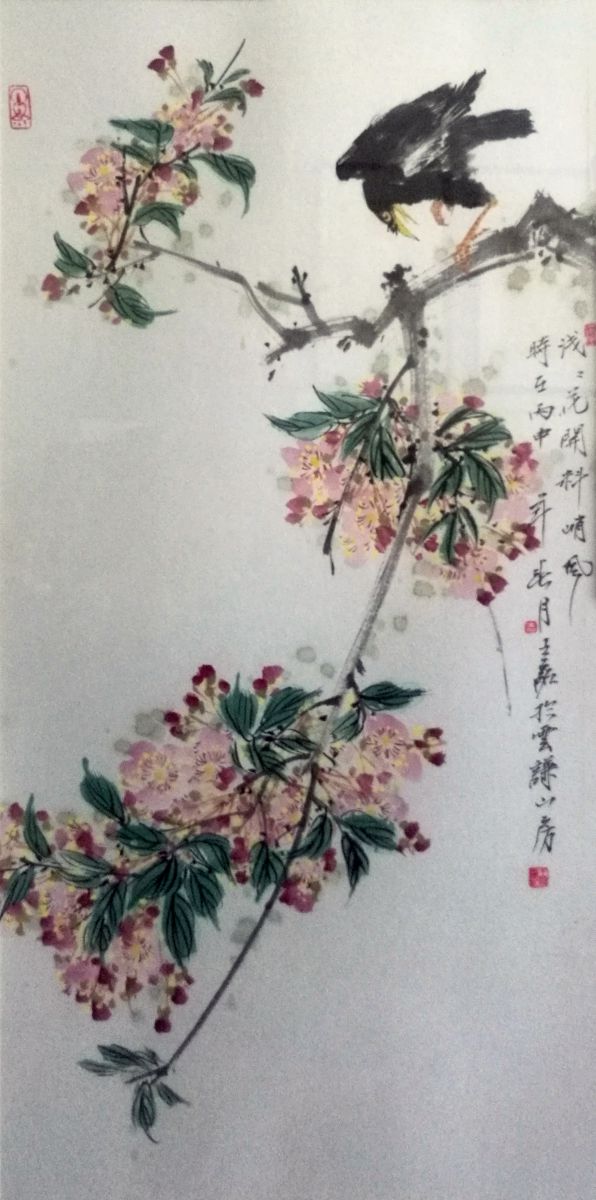 浅〻花開料峭風
時在丙申年春月王磊於雲謙山房